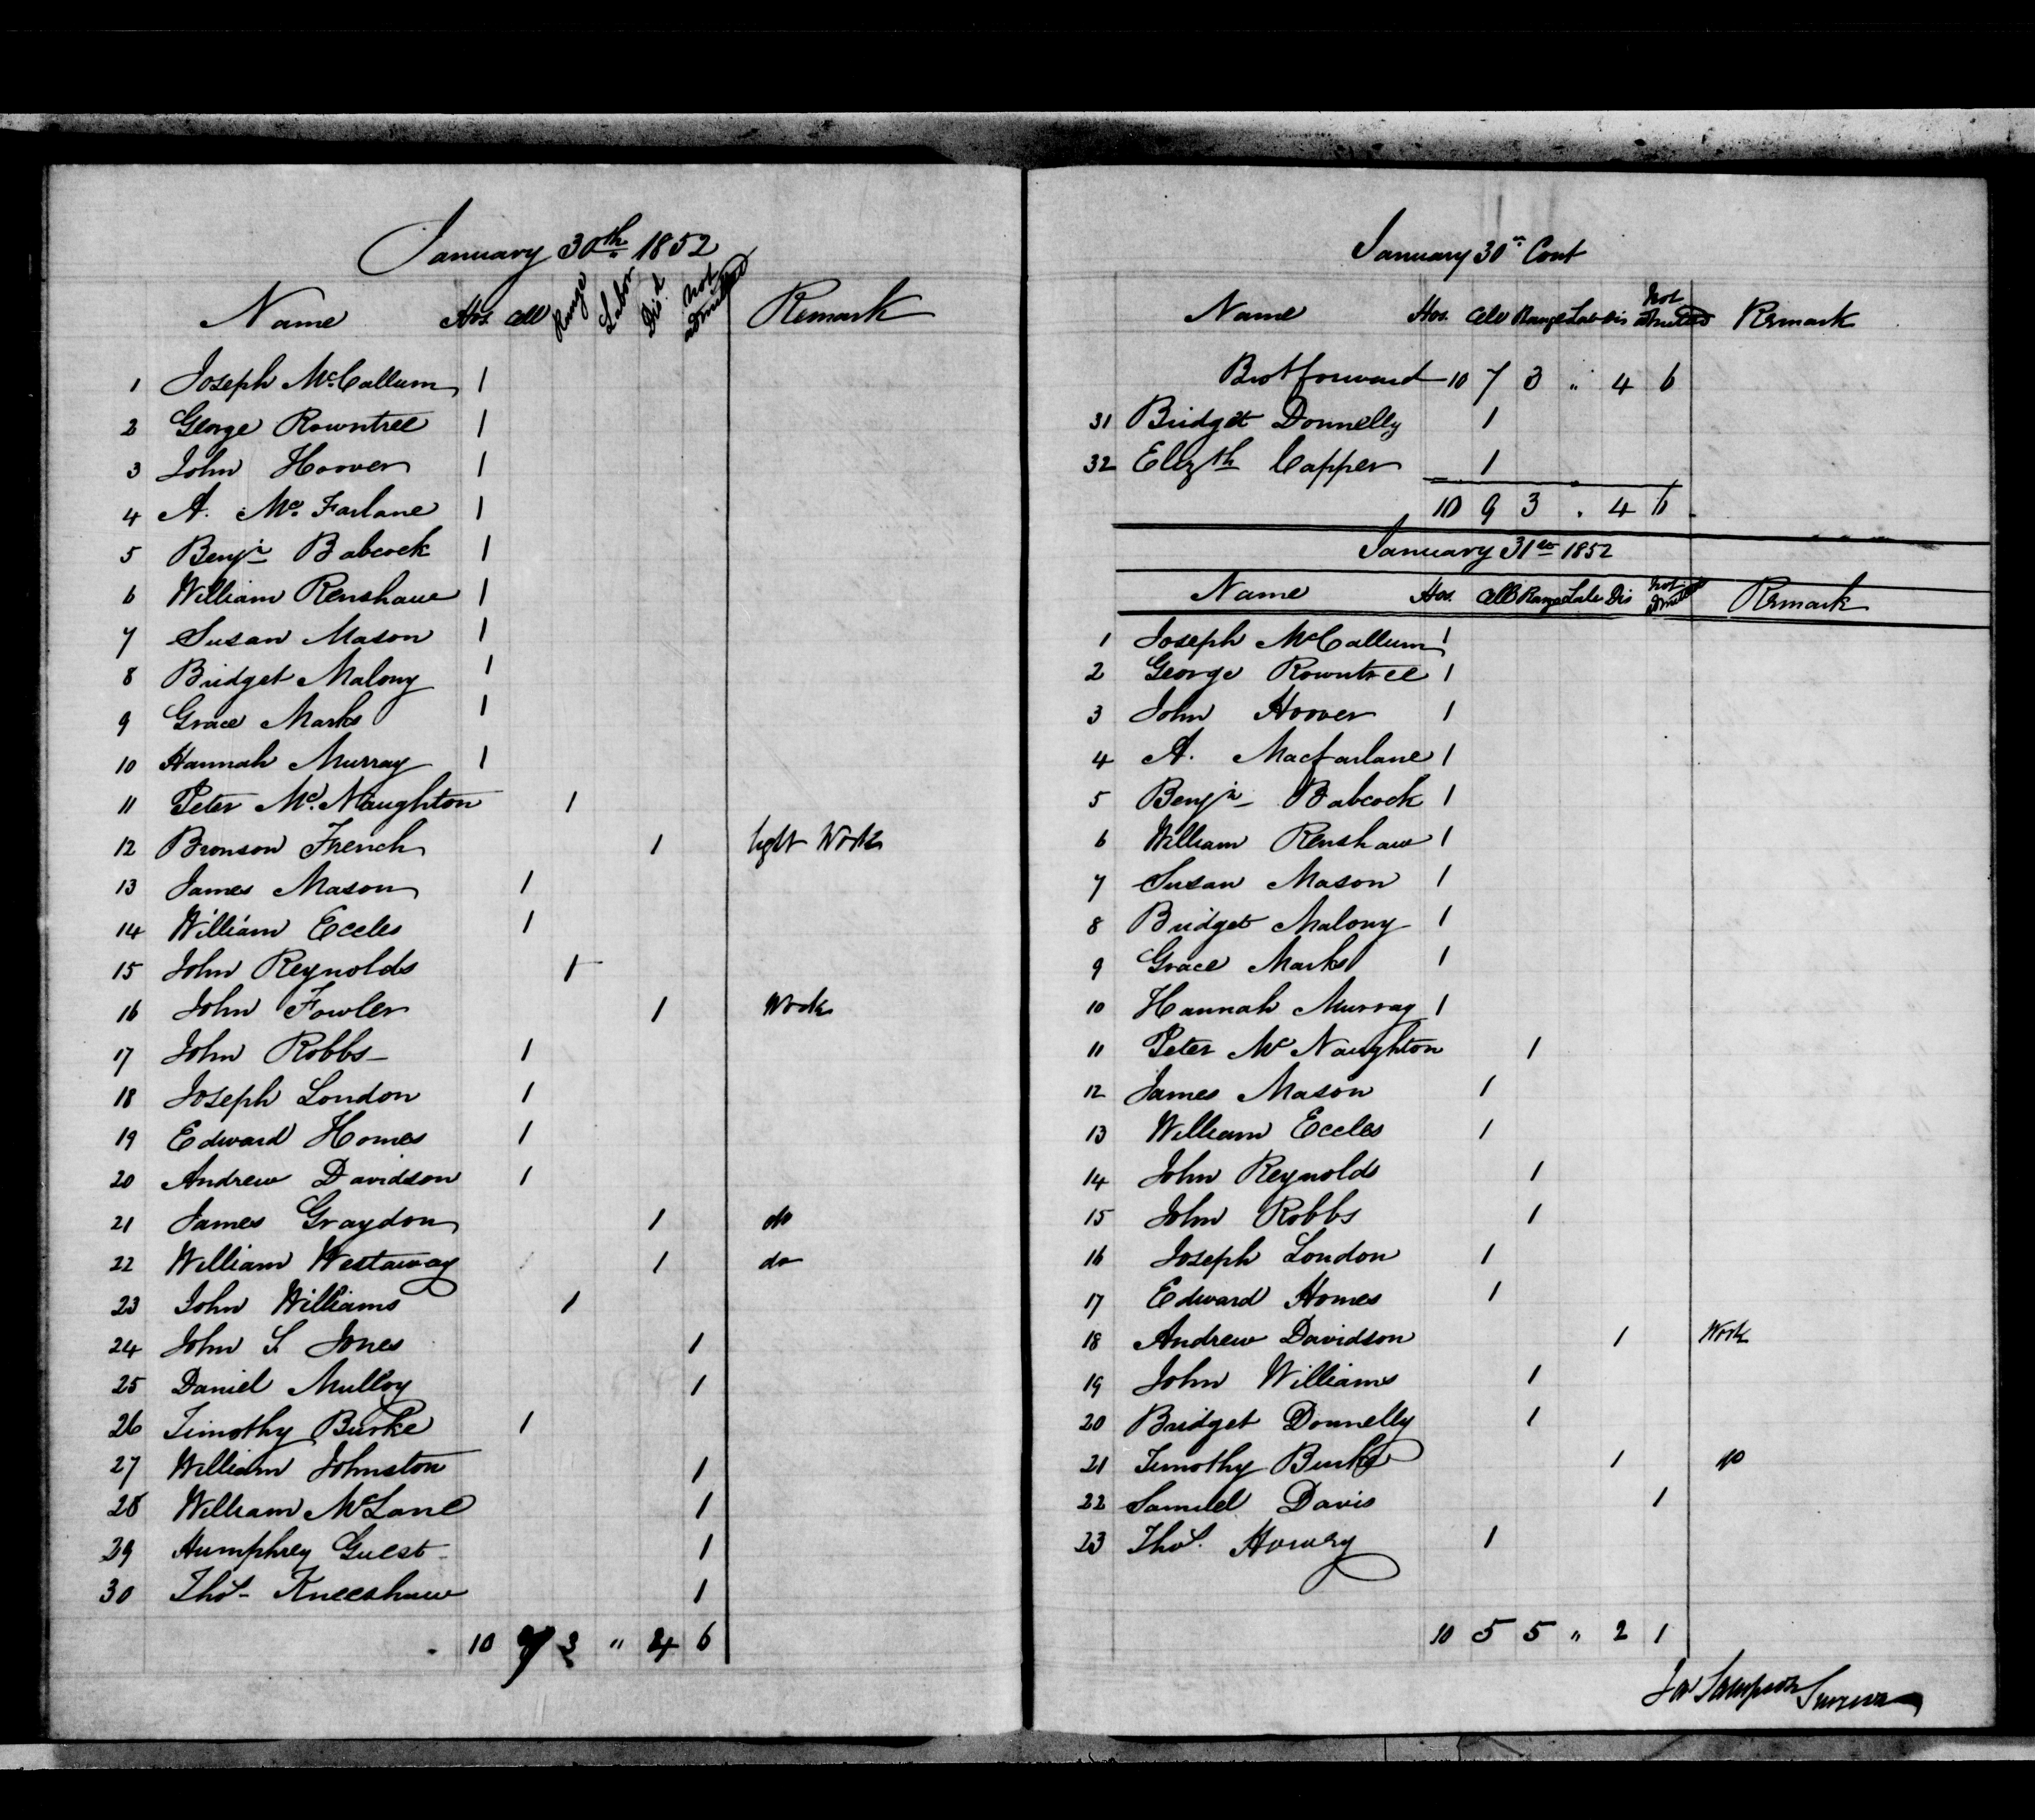 January 30th 1852
Name Hos. Cell Range Labor Dis.d Not admitted Remark
1 Joseph McCallum 1
2 George Rowntree 1
3 John Hoover 1
4 A. Mc. Farlane 1
5 Benjn Babcock 1
6 William Renshaw 1
7 Susan Mason 1
8 Bridget Malony 1
9 Grace Marks 1
10 Hannah Murray 1
11 Peter Mc. Naughton 1
12 Bronson French 1 light Work
13 James Mason 1
14 William Eccles 1
15 John Reynolds 1
16 John Fowler 1 Work
17 John Robbs 1
18 Joseph London 1
19 Edward Homes 1
20 Andrew Davidson 1
21 James Graydon 1 do
22 William Westaway 1 do
23 John Williams 1
24 John S. Jones 1
25 Daniel Mulloy 1
26 Timothy Burke 1
27 William Johnston 1
28 William McLane 1
29 Humphrey Guest 1
30 Thos. Kneeshaw 1
10 7 3 " 4 6
January 30th Cont
Name Hos. Cell Range Lab Dis Not admitted Remark
Brot forward 10 7 3 " 4 6
31 Bridget Donnelly 1
32 Elizth Capper 1
10 9 3 " 4 6
January 31st 1852
Name Hos. Cell Range Lab Dis Not admitted Remark
1 Joseph McCallum 1
2 George Rowntree 1
3 John Hoover 1
4 A. Macfarlane 1
5 Benjn Babcock 1
6 William Renshaw 1
7 Susan Mason 1
8 Bridget Malony 1
9 Grace Marks 1
10 Hannah Murray 1
11 Peter Mc Naughton 1
12 James Mason 1
13 William Eccles 1
14 John Reynolds 1
15 John Robbs 1
16 Joseph London 1
17 Edward Homes 1
18 Andrew Davidson 1 Work
19 John Williams 1
20 Bridget Donnelly 1
21 Timothy Burke 1 do
22 Samuel Davis 1
23 Thos. Howry 1
10 5 5 " 2 1
Ja Sampson Surgeon